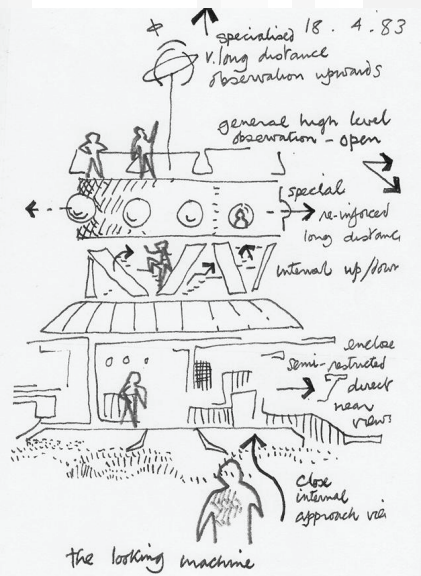 18.4.83
specialised
v. long distance
observation upwards
general high level
observation - open
special
re-inforced
long distance
internal up/down
enclose
semi-restricted
direct
near
views
close
internal
approach via
the looking machine